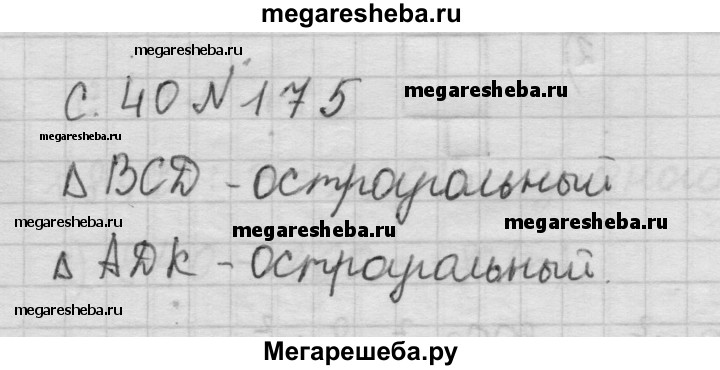 megaresheba.ru
megaresheba.ru
С. 40 N 175
megaresheba.ru
megaresheba.ru
megaresheba.ru
Δ ВСД - остроугольный
megaresheba.ru
megaresheba.ru
megaresheba.ru
Δ АДК - остроугольный.
megaresheba.ru
Мегарешеба.ру